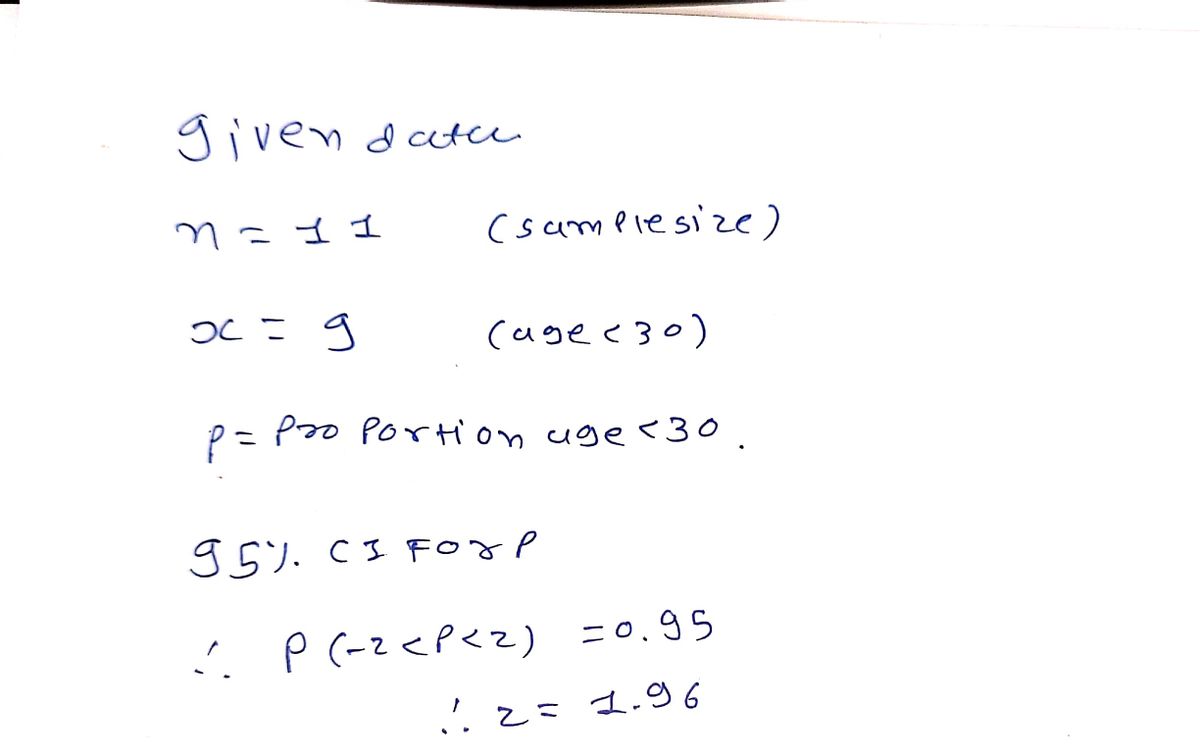 given data
n = 11 (sample size)
x = 9 (age < 30)
p = Proportion age < 30.
95% CI For P
∴ P (-z < P < z) = 0.95
∴ z = 1.96